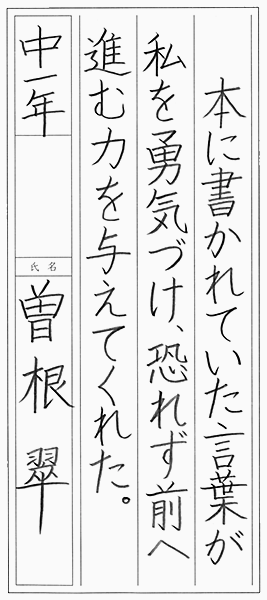 本に書かれていた言葉が
私を勇気づけ、恐れず前へ
進む力を与えてくれた。
中一年
氏名
曽根翠